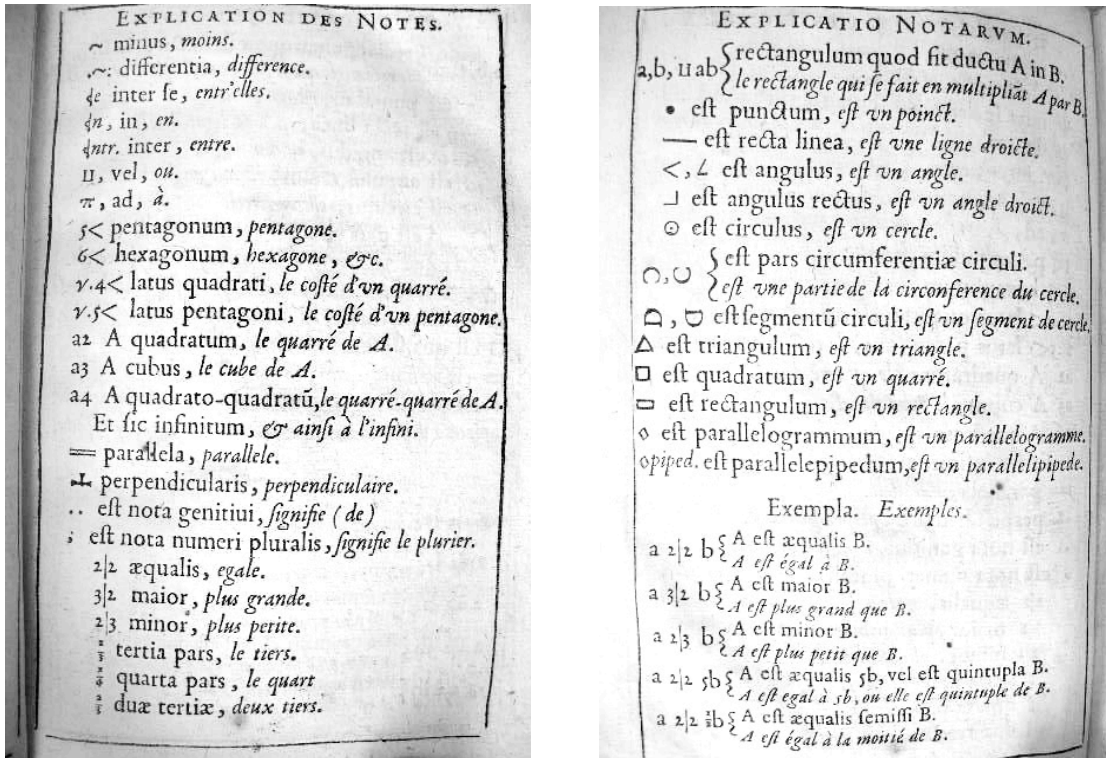 EXPLICATION DES NOTES.
~ minus, moins.
.~: differentia, difference.
ɖe inter ſe, entr'elles.
ɖn, in, en.
ɖntr. inter, entre.
ıı, vel, ou.
π, ad, à.
5< pentagonum, pentagone.
6< hexagonum, hexagone, &c.
γ.4< latus quadrati, le coſté d'vn quarré.
γ.5< latus pentagoni, le coſté d'vn pentagone.
a2 A quadratum, le quarré de A.
a3 A cubus, le cube de A.
a4 A quadrato-quadratũ, le quarré-quarré de A.
Et ſic infinitum, & ainſi à l'infini.
═ parallela, parallele.
⊥ perpendicularis, perpendiculaire.
.. eſt nota genitiui, ſignifie (de)
; eſt nota numeri pluralis, ſignifie le plurier.
2|2 æqualis, egale.
3|2 maior, plus grande.
2|3 minor, plus petite.
tertia pars, le tiers.
quarta pars, le quart
duæ tertiæ, deux tiers.
EXPLICATIO NOTARVM.
a,b, ıı ab { rectangulum quod fit ductu A in B.
le rectangle qui ſe fait en multipliãt A par B.
• eſt punctum, eſt vn poinct.
— eſt recta linea, eſt vne ligne droicte.
<, ∠ eſt angulus, eſt vn angle.
⅃ eſt angulus rectus, eſt vn angle droict.
⊙ eſt circulus, eſt vn cercle.
◠, ◡ { eſt pars circumferentiæ circuli.
eſt vne partie de la circonference du cercle.
⌓, ᗜ eſt ſegmentũ circuli, eſt vn ſegment de cercle.
△ eſt triangulum, eſt vn triangle.
□ eſt quadratum, eſt vn quarré.
▭ eſt rectangulum, eſt vn rectangle.
◊ eſt parallelogrammum, eſt vn parallelogramme.
◊piped. eſt parallelepipedum, eſt vn parallelipipede.
Exempla. Exemples.
a 2|2 b { A eſt æqualis B.
A eſt égal à B.
a 3|2 b { A eſt maior B.
A eſt plus grand que B.
a 2|3 b { A eſt minor B.
A eſt plus petit que B.
a 2|2 5b { A eſt æqualis 5b, vel eſt quintupla B.
A eſt egal à 5b, ou elle eſt quintuple de B.
a 2|2 ½b { A eſt æqualis ſemiſſi B.
A eſt égal à la moitié de B.